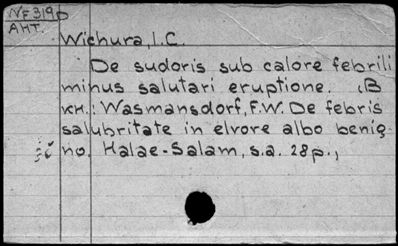 NF 319D
АНТ.
Wichura, I.C.
De sudoris sub calore febrili
minus salutari eruptione. (В
кн.: Wasmansdorf, F.W. De febris
salubritate in elvore albo benig
no. Halae-Salam, s.a. 28p.,